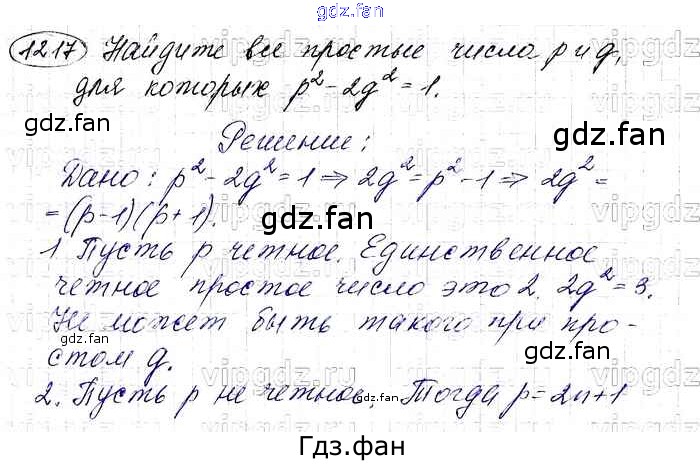 gdz.fan
1217 Найдите все простые числа p и q,
для которых p² - 2q² = 1.
gdz.fan gdz.fan
Решение:
Дано: p² - 2q² = 1 ⇒ 2q² = p² - 1 ⇒ 2q² =
= (p-1)(p+1).
gdz.fan
1. Пусть p четное. Единственное
четное простое число это 2. 2q² = 3.
Не может быть такого при про-
стом q.
gdz.fan gdz.fan
2. Пусть p не четное, Тогда p = 2n+1
gdz.fan
Гдз.фан